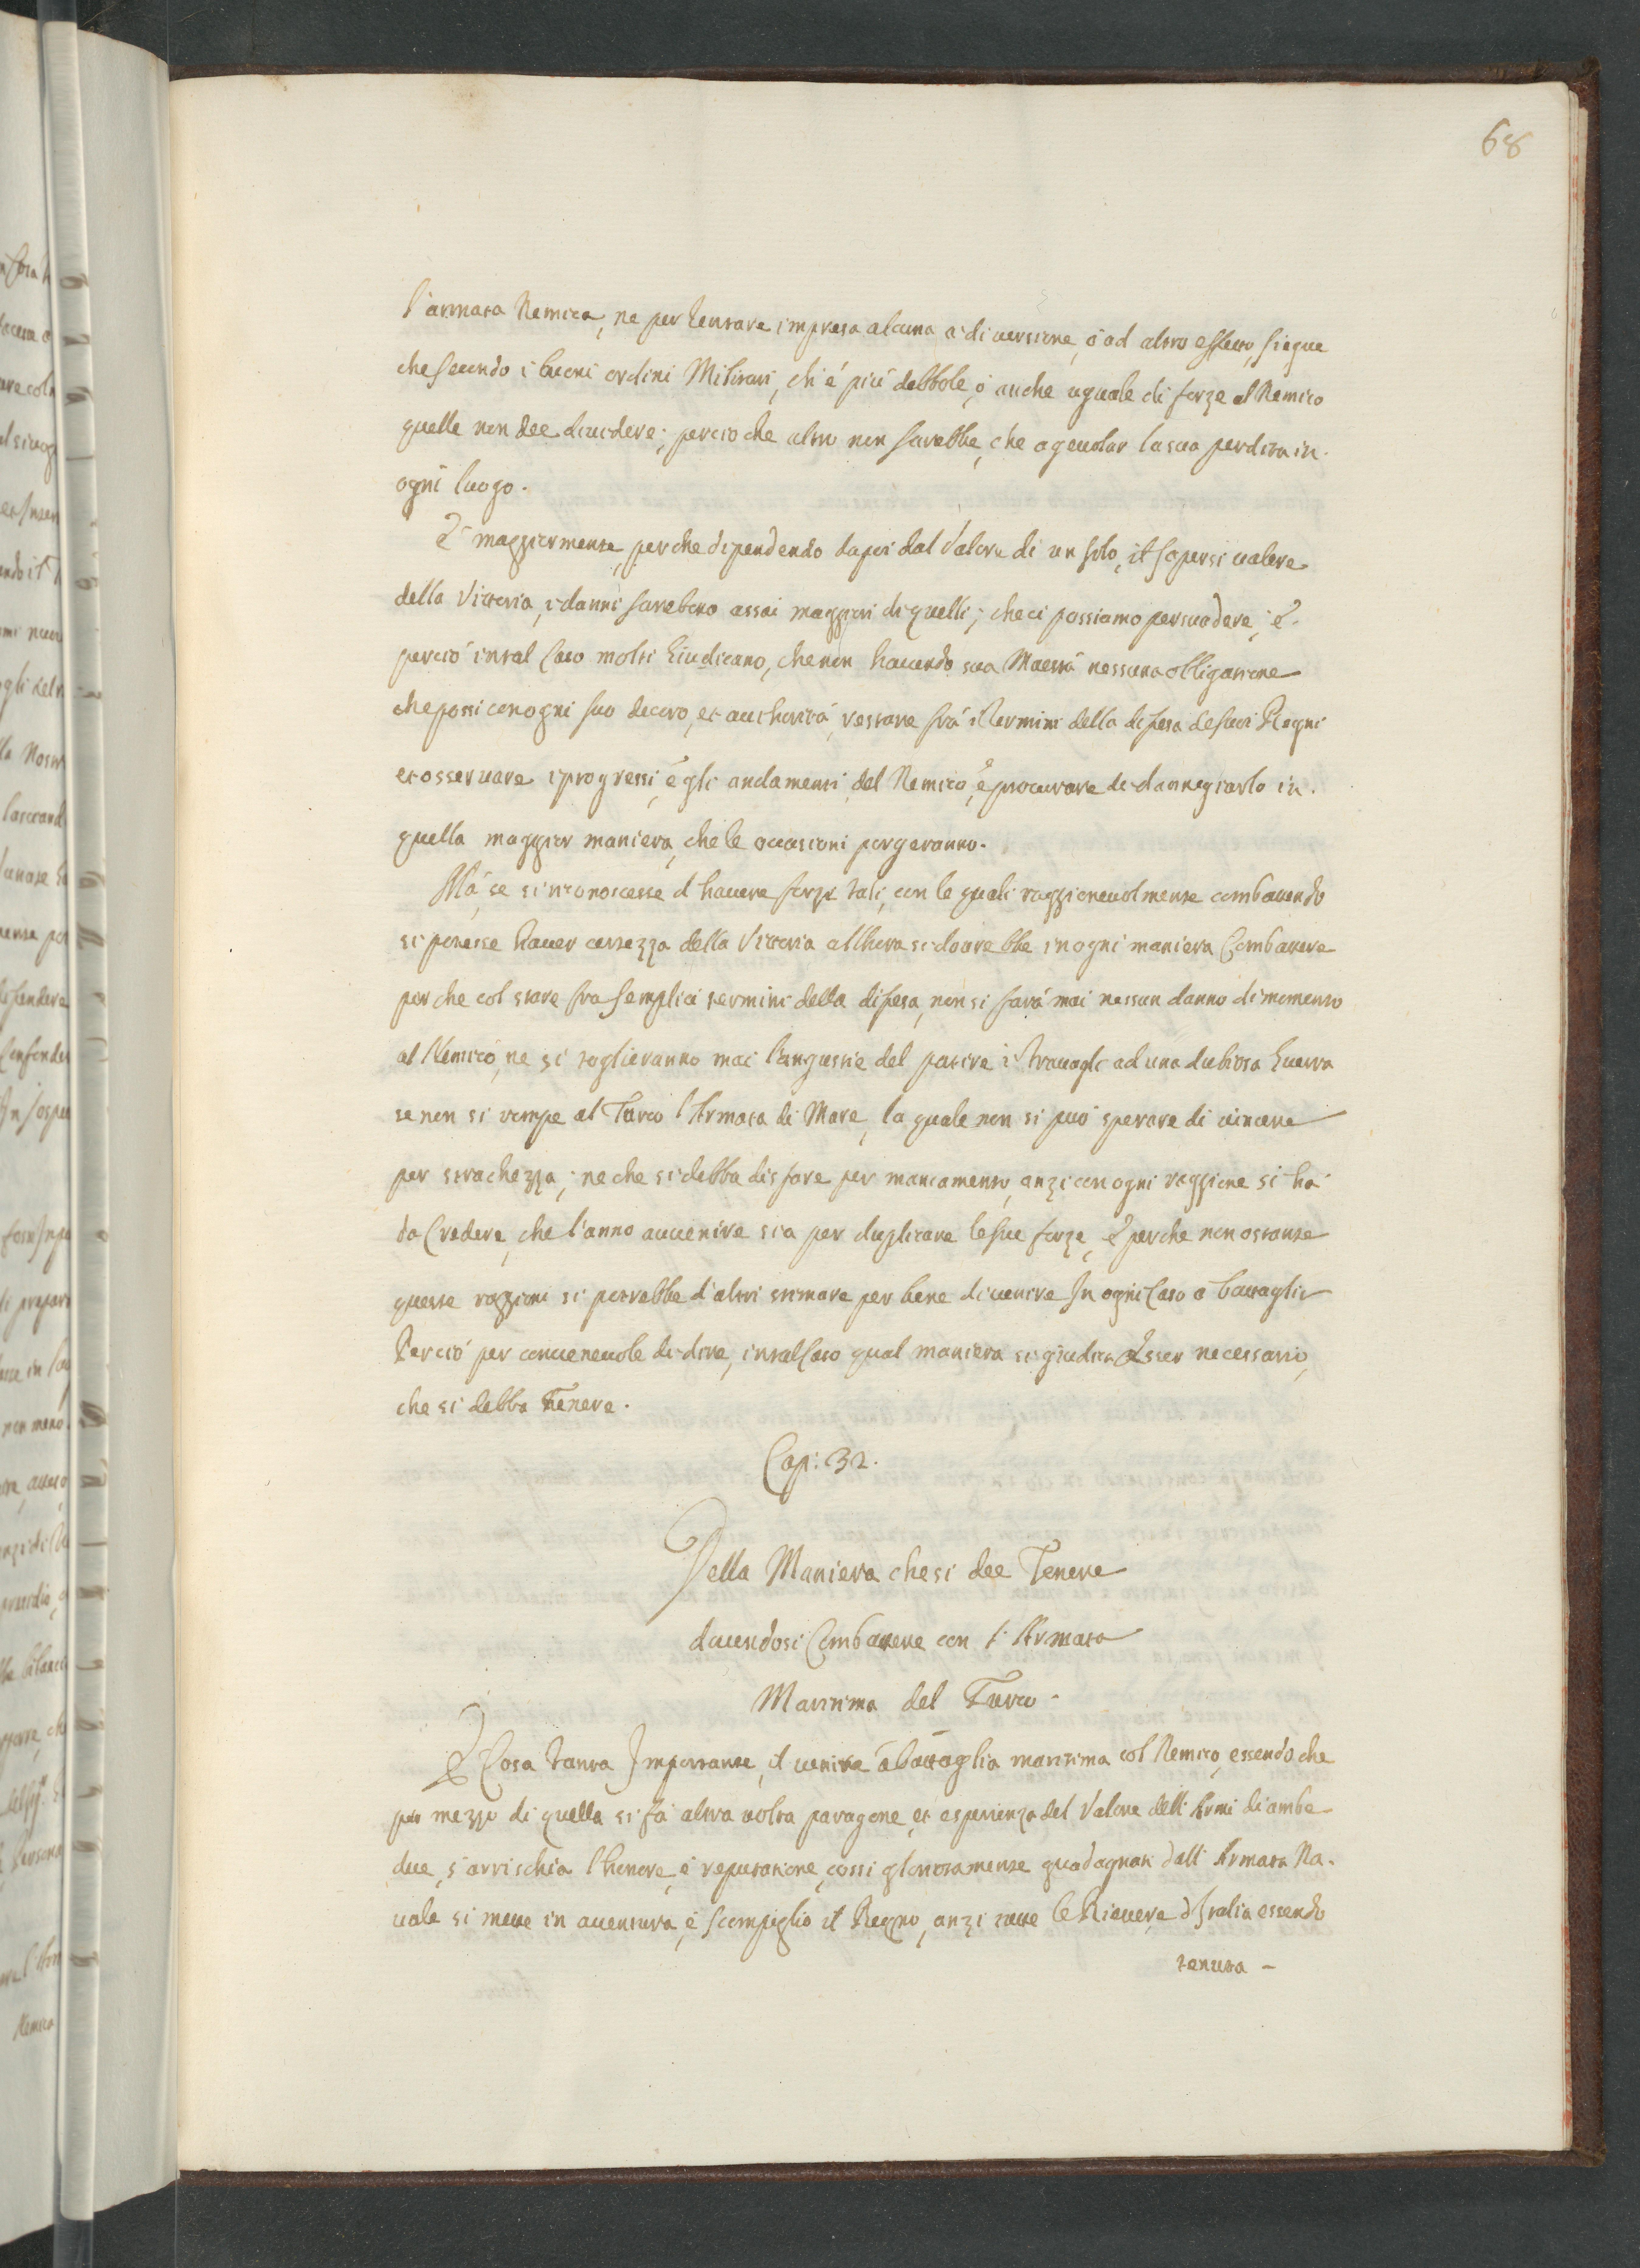 68
l'armata Nemica, ne per tentare impresa alcuna a diversione, ó ad altro effetto, siegue
che secondo i buoni ordini Militari, ch'é piú debbole, ó anche uguale di forze al Nemico
quelle non dee dividere; percio che altro non sarebbe, che agevolar la sua perdita in
ogni luogo.
E maggiormente, perche dipendendo dapoi dal Valore di un solo, il sapersi valere
della Vittoria, i danni sarebero assai maggiori di quelli; che ci possiamo persuadere; é
perció in tal Caso molti Giudicano, che non havendo sua Maestá nessuna obligatione
che possi con ogni suo decoro, et authoritá, restare frá i termini della difesa de suoi Regni
et osservare i progressi, é gli andamenti del Nemico, é procurare di dannegiarlo in
quella maggior maniera, che le occasioni porgeranno.
Má, se si riconoscesse d'havere forze tali, con le quali raggionevolmente combattendo
si potesse haver certezza della Vittoria allhora si dovrebbe in ogni maniera Combattere
per che col stare fra semplici termini della difesa, non si fará mai nessun danno di momento
al Nemico, ne si toglieranno mai l'angustie del patire i travagli ad una dubiosa Guerra
se non si rompe al Turco l'Armata di Mare, la quale non si puó sperare di vincere
per strachezza; ne che si debba disfare per mancamento, anzi con ogni raggione si há
da Credere, che l'anno avvenire sia per duplicare le sue forze, é perche non ostante
queste raggioni si potrebbe d'altri stimare per bene di venire In ogni Caso a battaglia
Perció per convenevole di dire, in tal Caso qual maniera si giudica Esser necessario,
che si debba Tenere.
Cap: 32.
Della Maniera che si dee Tenere
dovendosi Combattere con l'Armata
Maritima del Turco.
E Cosa tanta Importante, il venire á battaglia maritima col Nemico, essendo che
per mezzo di quella si fá altra volta paragone, et esperienza del Valore dell'Armi di ambe
due, s'arrischia l'honore, é reputatione, cossi gloriosamente guadagnati dall'Armata Na-
vale si mette in aventura, é scompiglio il Regno, anzi tutte le Riviere d'Italia essendo
tenuta -